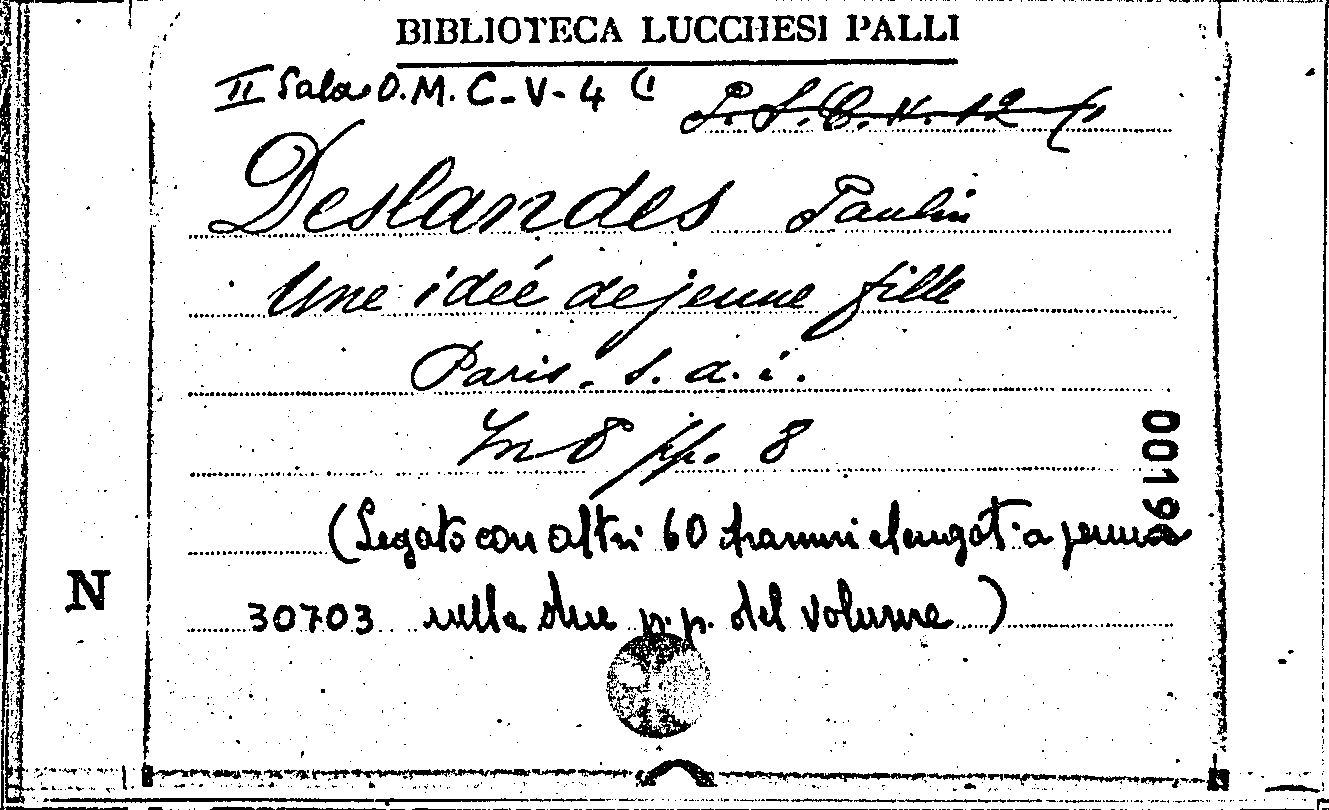 BIBLIOTECA LUCCHESI PALLI
II Sala O.M. C-V-4 (1
Deslandes Paulin
Une idée de jeune fille
Paris. s. a. i.
In 8 pp. 8
(Legato con altri 60 drammi elengati a penna
30703 nelle due p.p. del volume)
N
00198